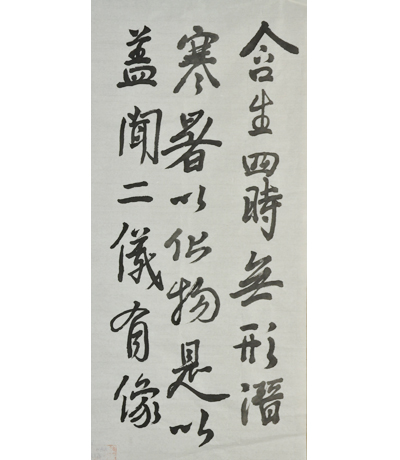 含生四時無形潛
寒暑以化物是以
盖聞二儀有像